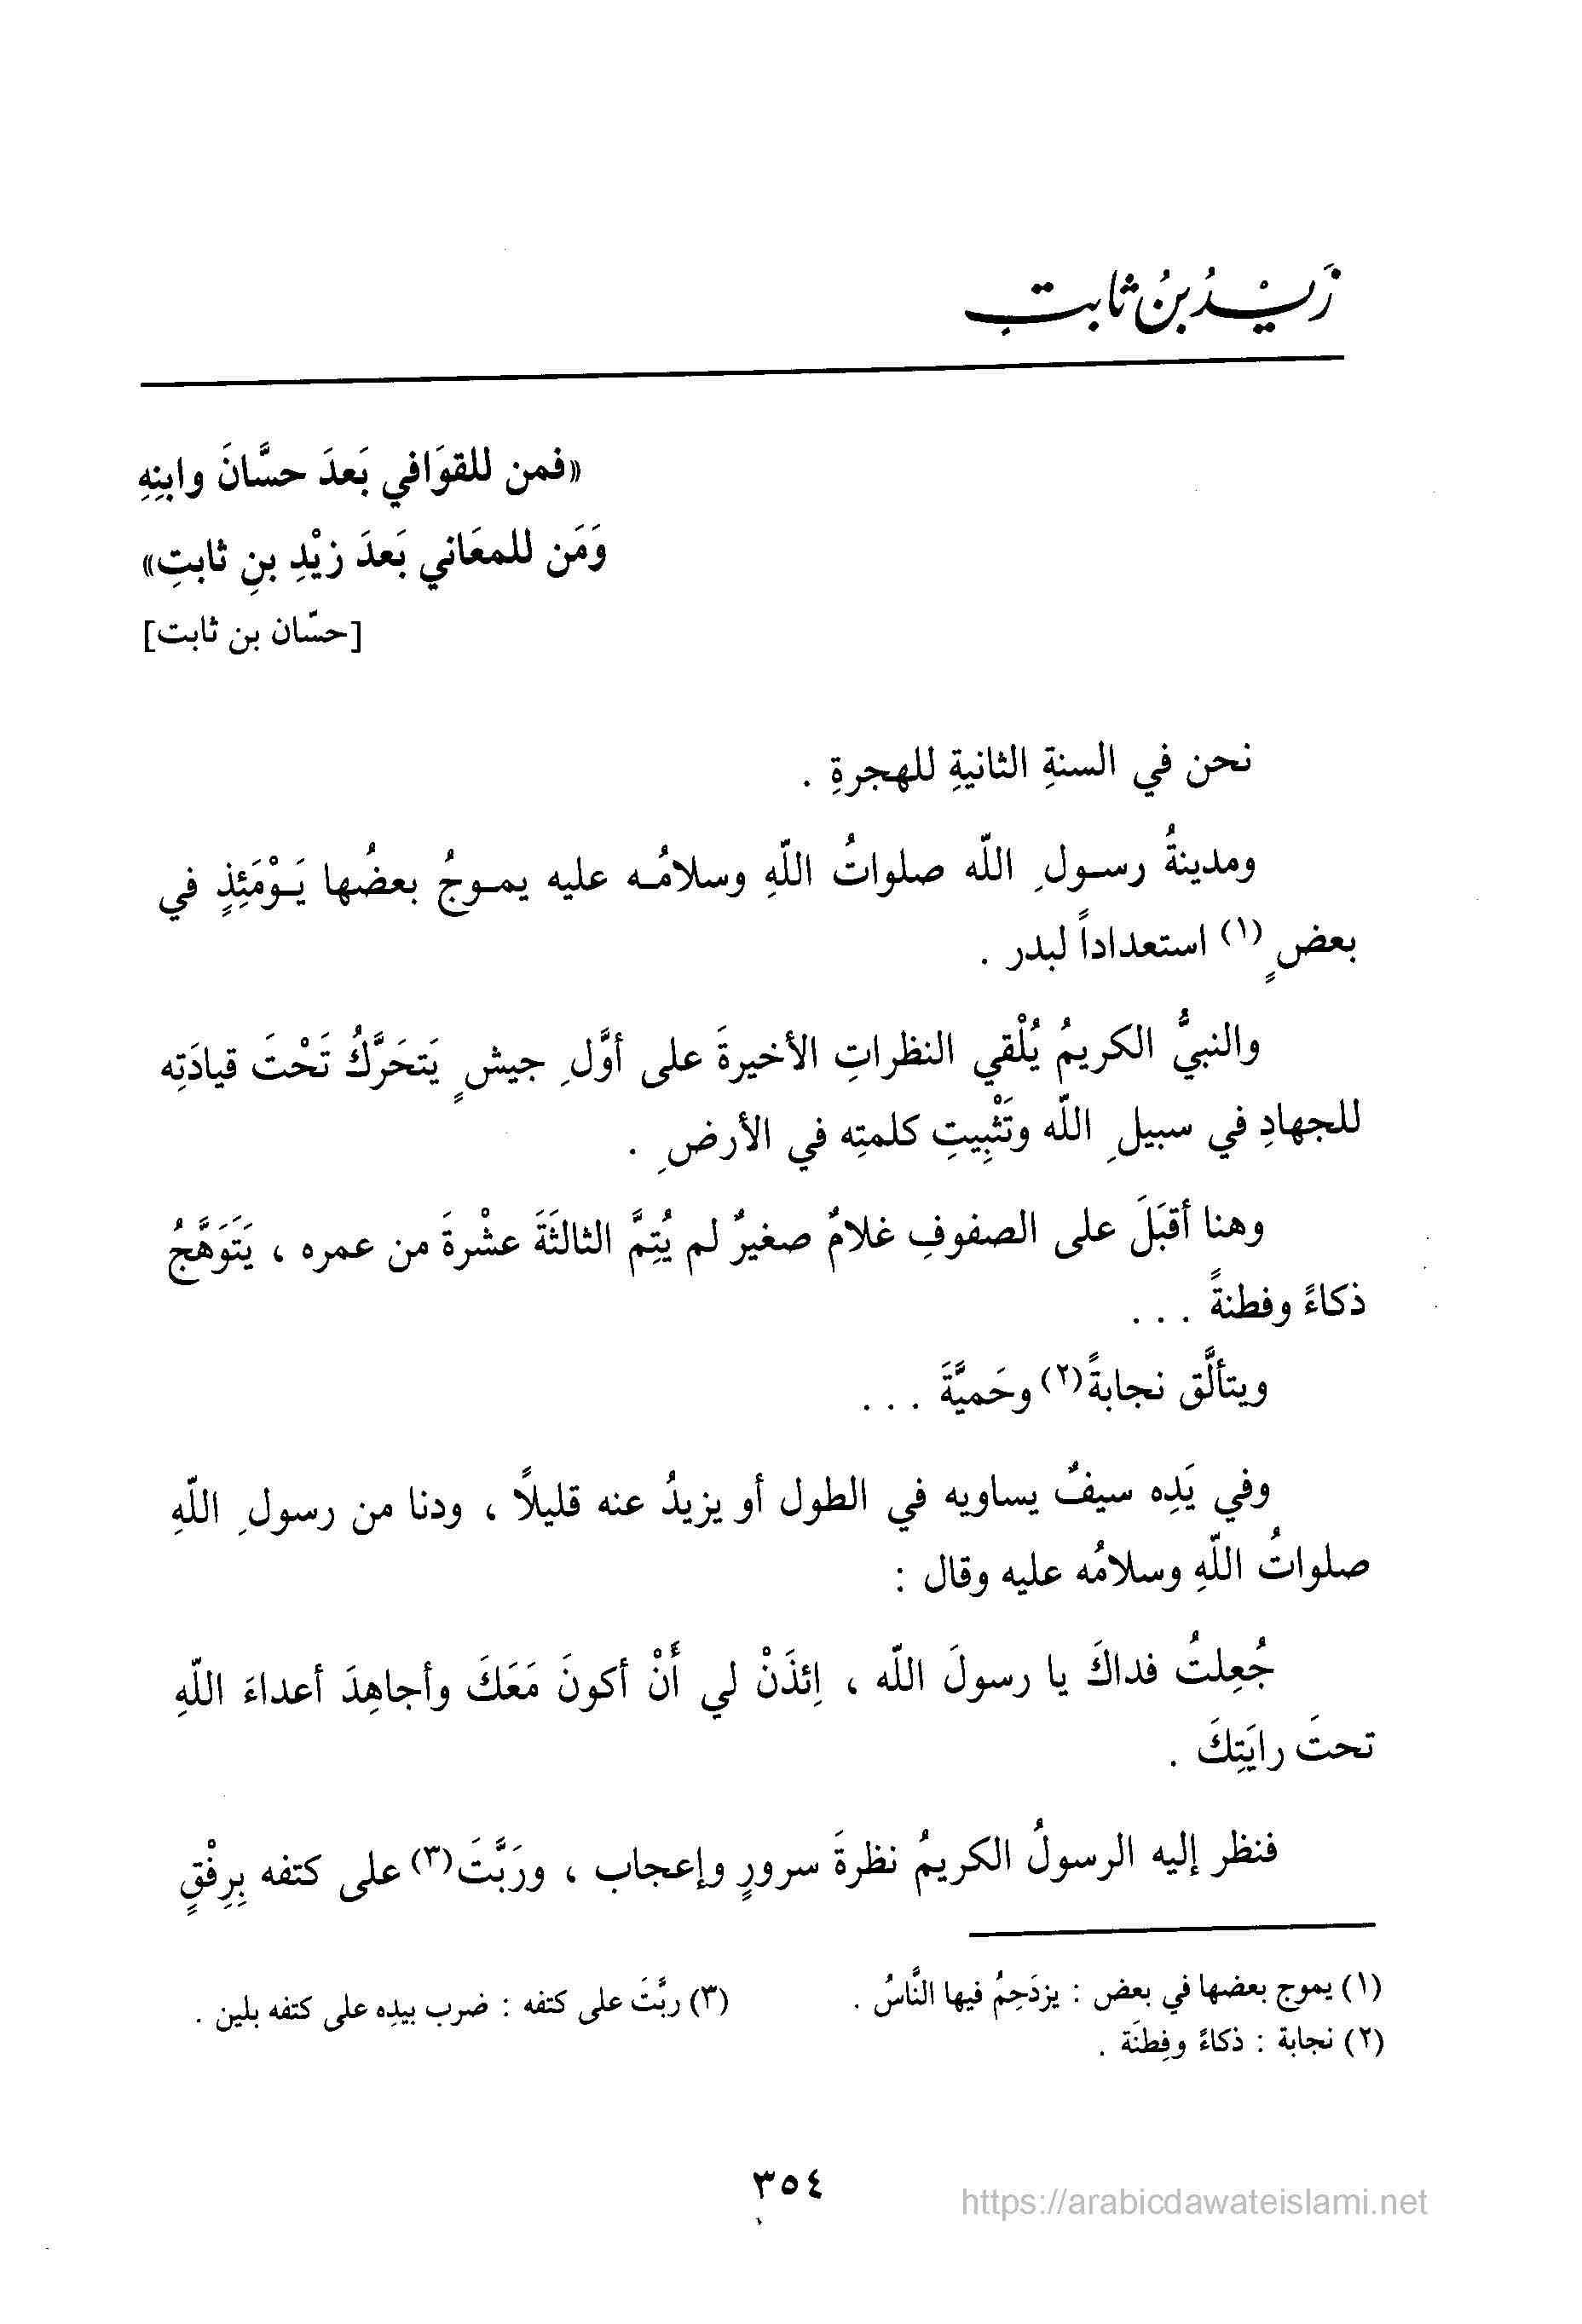 زَيْدُ بنُ ثابتٍ
«فمن للقوَافي بَعدَ حسَّانَ وابنِهِ
وَمَن للمعَاني بَعدَ زيْدِ بنِ ثابتِ»
[حسّان بن ثابت]
نحن في السنةِ الثانيةِ للهجرةِ .
ومدينةُ رسولِ اللّه صلواتُ اللّهِ وسلامُه عليه يموجُ بعضُها يَوْمَئِذٍ في
بعضٍ (١) استعداداً لبدر .
والنبيُّ الكريمُ يُلْقي النظراتِ الأخيرةَ على أوَّلِ جيشٍ يَتحَرَّكُ تَحْتَ قيادَتِه
للجهادِ في سبيلِ اللّه وتَثْبِيتِ كلمتِه في الأرضِ .
وهنا أقبَلَ على الصفوفِ غلامٌ صغيرٌ لم يُتِمَّ الثالثَةَ عشْرةَ من عمره ، يَتَوَهَّجُ
ذكاءً وفطنةً . . .
ويتألَّق نجابةً(٢) وحَميَّةَ . . .
وفي يَدِه سيفٌ يساويه في الطول أو يزيدُ عنه قليلاً ، ودنا من رسولِ اللّهِ
صلواتُ اللّهِ وسلامُه عليه وقال :
جُعِلتُ فداكَ يا رسولَ اللّه ، اِئذَنْ لي أَنْ أكونَ مَعَكَ وأجاهِدَ أعداءَ اللّهِ
تحتَ رايَتِكَ .
فنظر إليه الرسولُ الكريمُ نظرةَ سرورٍ وإعجاب ، ورَبَّتَ(٣) على كتفه بِرِفْقٍ
(١) يموج بعضها في بعض : يزدَحِمُ فيها النَّاسُ .
(٢) نجابة : ذكاءً وفِطنَة .
(٣) ربَّتَ على كتفه : ضرب بيدِه على كتفه بلين .
٣٥٤
https://arabicdawateislami.net